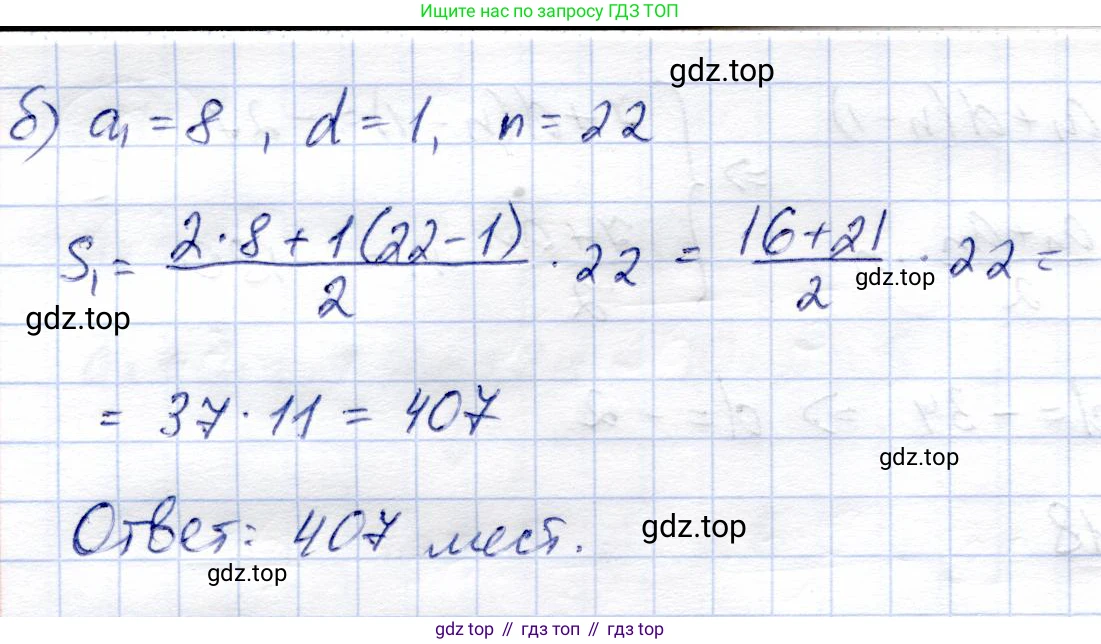 Ищите нас по запросу ГДЗ ТОП
gdz.top
б) a₁ = 8, d = 1, n = 22
S₁ = (2·8 + 1(22 - 1))/2 · 22 = (16 + 21)/2 · 22 =
gdz.top
gdz.top
= 37 · 11 = 407
gdz.top
Ответ: 407 мест.
gdz.top
gdz.top
gdz top // гдз топ // гдз top